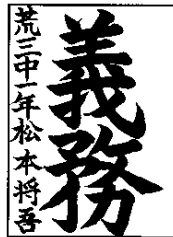 義務
荒三中一年松本将吾